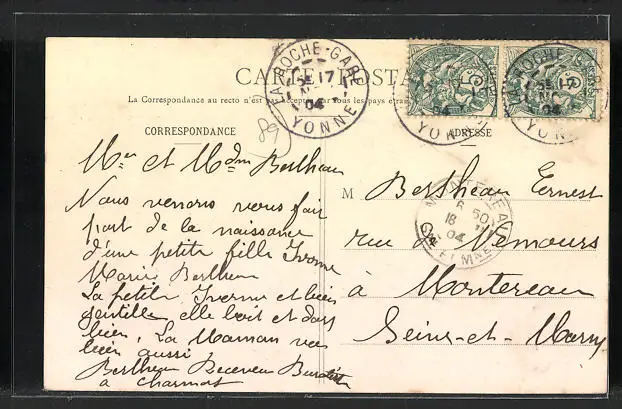 CARTE POSTALE
La Correspondance au recto n'est pas acceptée par tous les pays étran
CORRESPONDANCE
ADRESSE
LA ROCHE-GARE
17
04
YONNE
LA ROCHE-GARE
04
YONNE
89
Mr et Mdm Bertheau
Nous venons vous fair
part de la naissance
d'une petite fille Yvonne
Marie Bertheau
La petite Yvonne et bien
gentille elle boit et dors
bien, La Maman va
bien aussi
Bertheau Receveur
a Charmoy
M Bertheau Ernest
rue de Nemours
à Montereau
Seine-et-Marne
MONTEREAU
6 50
18
04